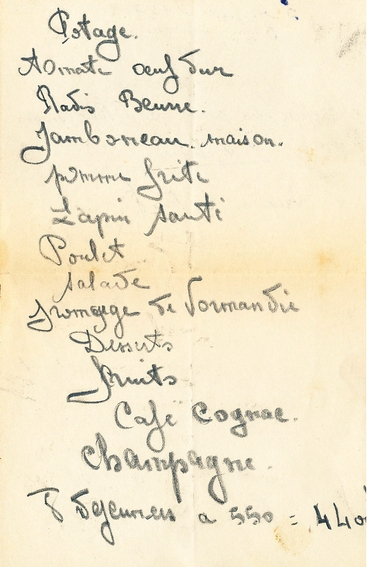 Potage.
Tomate œuf dur
Radis Beurre.
Jambonneau. maison.
pomme frite
Lapin sauté
Poulet
salade
fromage de Normandie
Desserts
fruits
Café Cognac.
Champagne.
8 Dejeuners a 550 = 440